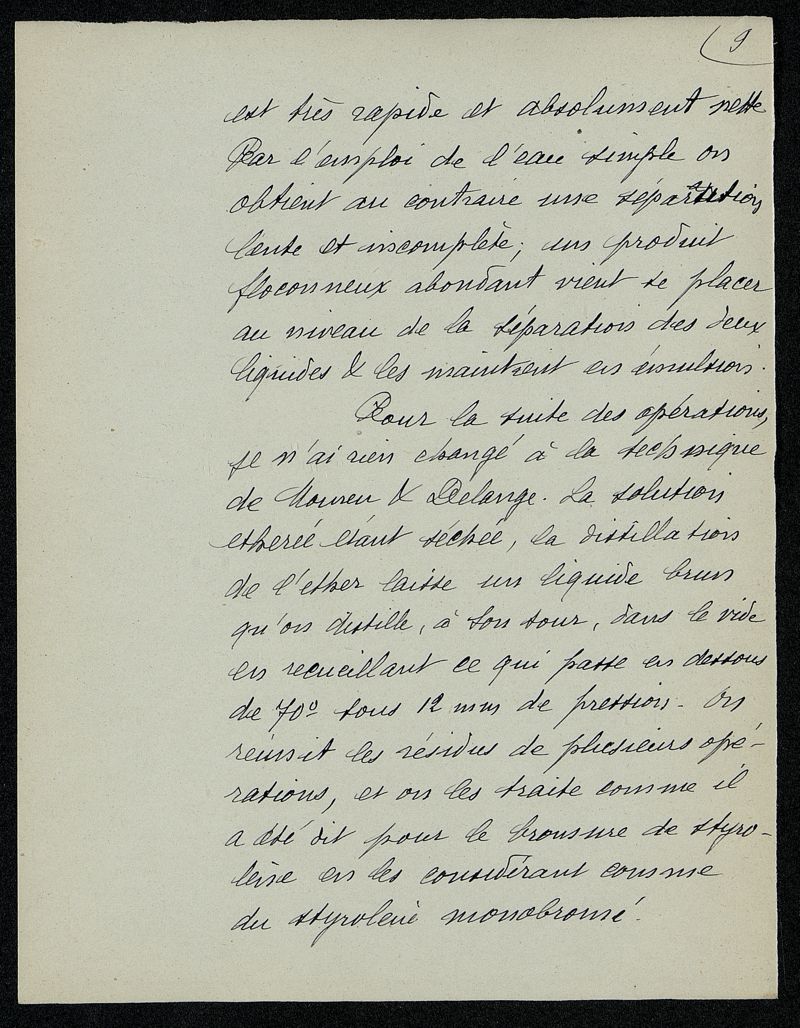 9
est très rapide et absolument nette
Par l'emploi de l'eau simple on
obtient au contraire une séparation
lente et incomplète; un produit
floconneux abondant vient se placer
au niveau de la séparation des deux
liquides & les maintient en émulsion.
Pour la suite des opérations,
je n'ai rien changé à la technique
de Moureu & Delange. La solution
etherée étant séchée, la distillation
de l'ether laisse un liquide brun
qu'on distille, à son tour, dans le vide
en recueillant ce qui passe en dessous
de 70° sous 12 mm de pression - On
reunit les résidus de plusieurs opé-
rations, et on les traite comme il
a été dit pour le bromure de styro-
lène en les considérant comme
du styrolène monobromé.